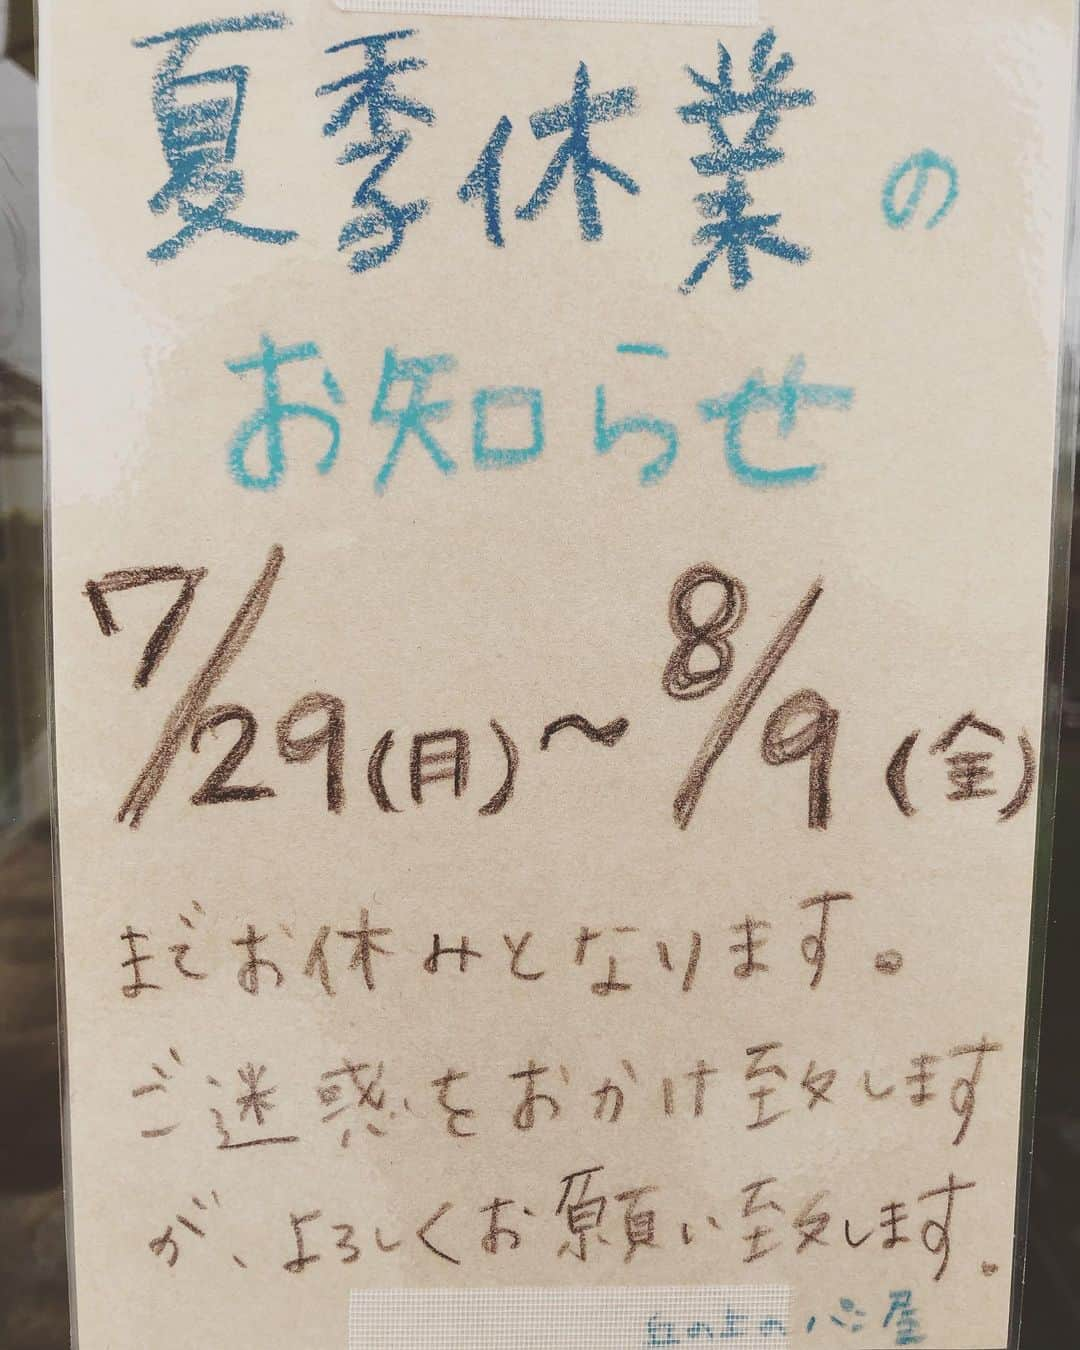 夏季休業の
お知らせ
7/29(月)～8/9(金)
までお休みとなります。
ご迷惑をおかけ致します
が、よろしくお願い致します。
丘の上のパン屋